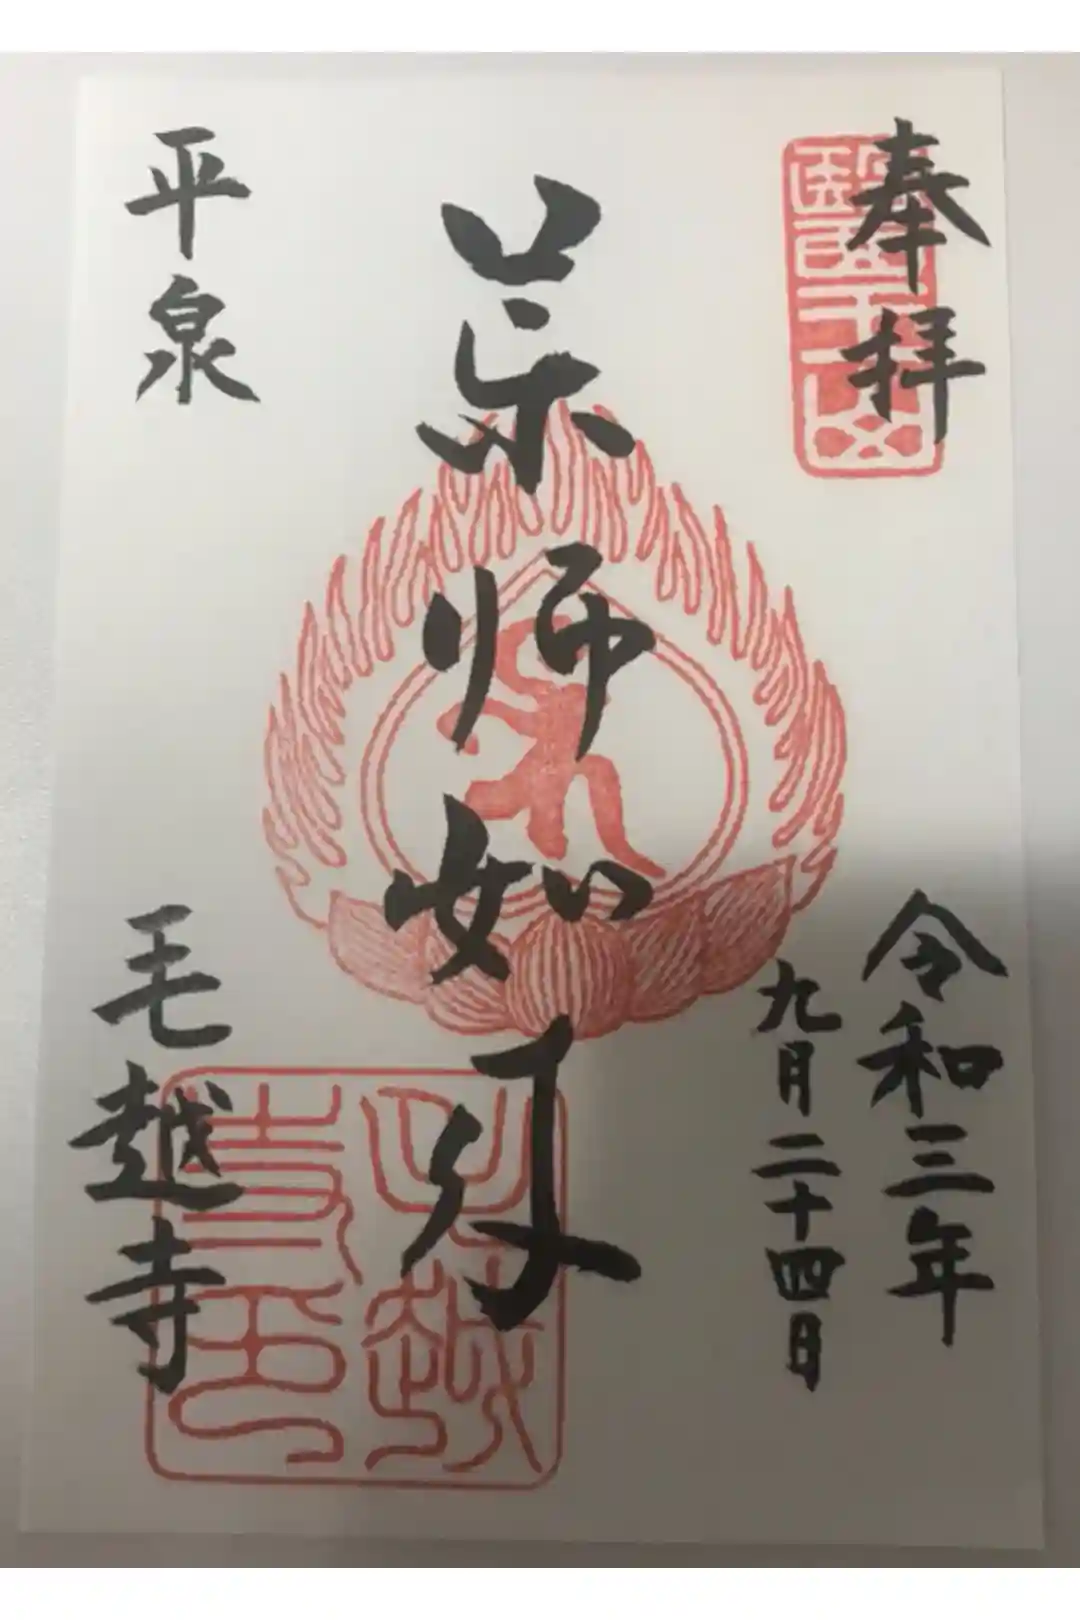 奉拝
令和三年
九月二十四日
薬師如来
平泉
毛越寺
毛越寺印